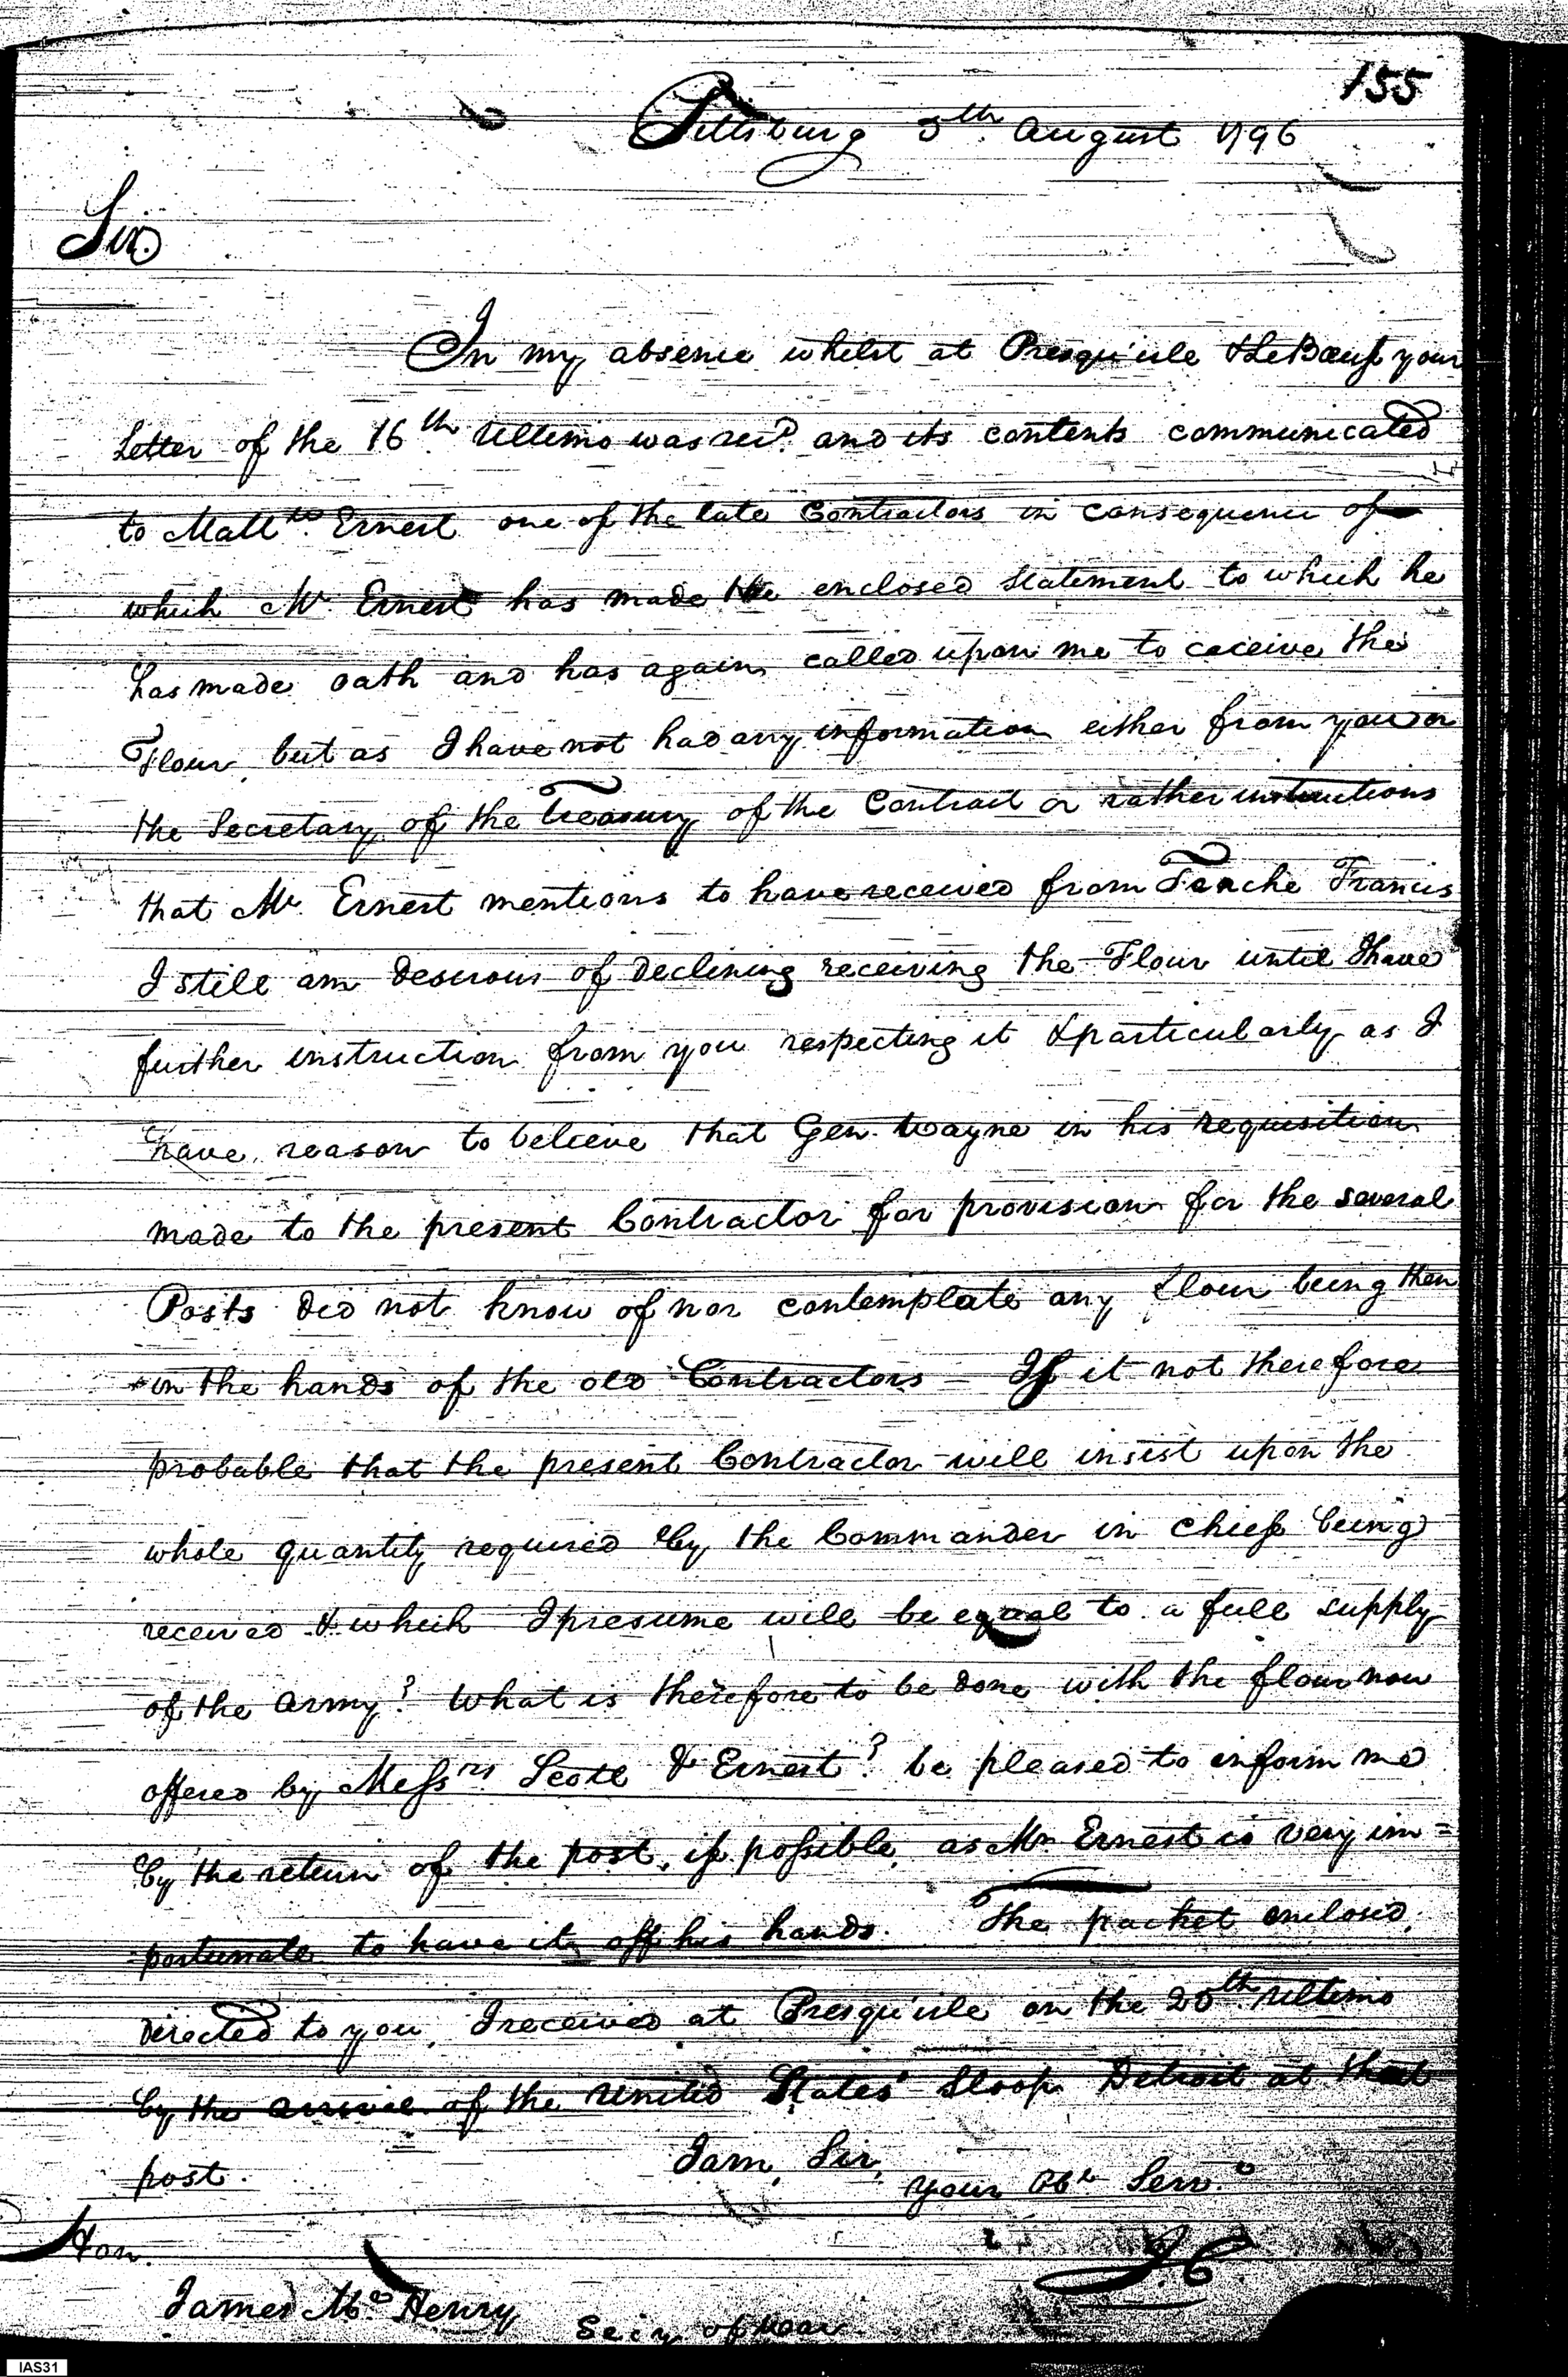 155
Pittsburg 5th August 1796
Sir
In my absence whilst at Presqu'isle & LeBœuf your
Letter of the 16th Ultimo was recd. and its contents communicated
to Matt.ws Ernest one of the late Contractors in consequence of
which Mr Ernest has made the enclosed statement to which he
has made oath and has again called upon me to receive the
Flour, but as I have not had any information either from you or
the Secretary of the Treasury of the Contract or rather instructions
that Mr. Ernest mentions to have received from Tenche Francis
I still am desirous of declining receiving the Flour until I have
further instruction from you respecting it & particularly as I
have reason to believe that Gen. Wayne in his requisition
made to the present Contractor for provision for the several
Posts did not know of nor contemplate any flour being then
in the hands of the old Contractors – If it not therefore
probable that the present Contractor will insist upon the
whole quantity required by the Commander in chief being
received & which I presume will be equal to a full supply
of the army? What is therefore to be done with the flour now
offered by Messrs Scott & Ernest? be pleased to inform me
by the return of the post, if possible, as Mr Ernest is very im=
=portunate to have it off his hands. The packet enclosed,
directed to you, I received at Presqu'isle on the 20th Ultimo
by the arrival of the United States' Sloop Detroit at that
post.
I am, Sir,
your Obt Serv.
Hon.
James McHenry
Secy of War
IAS31